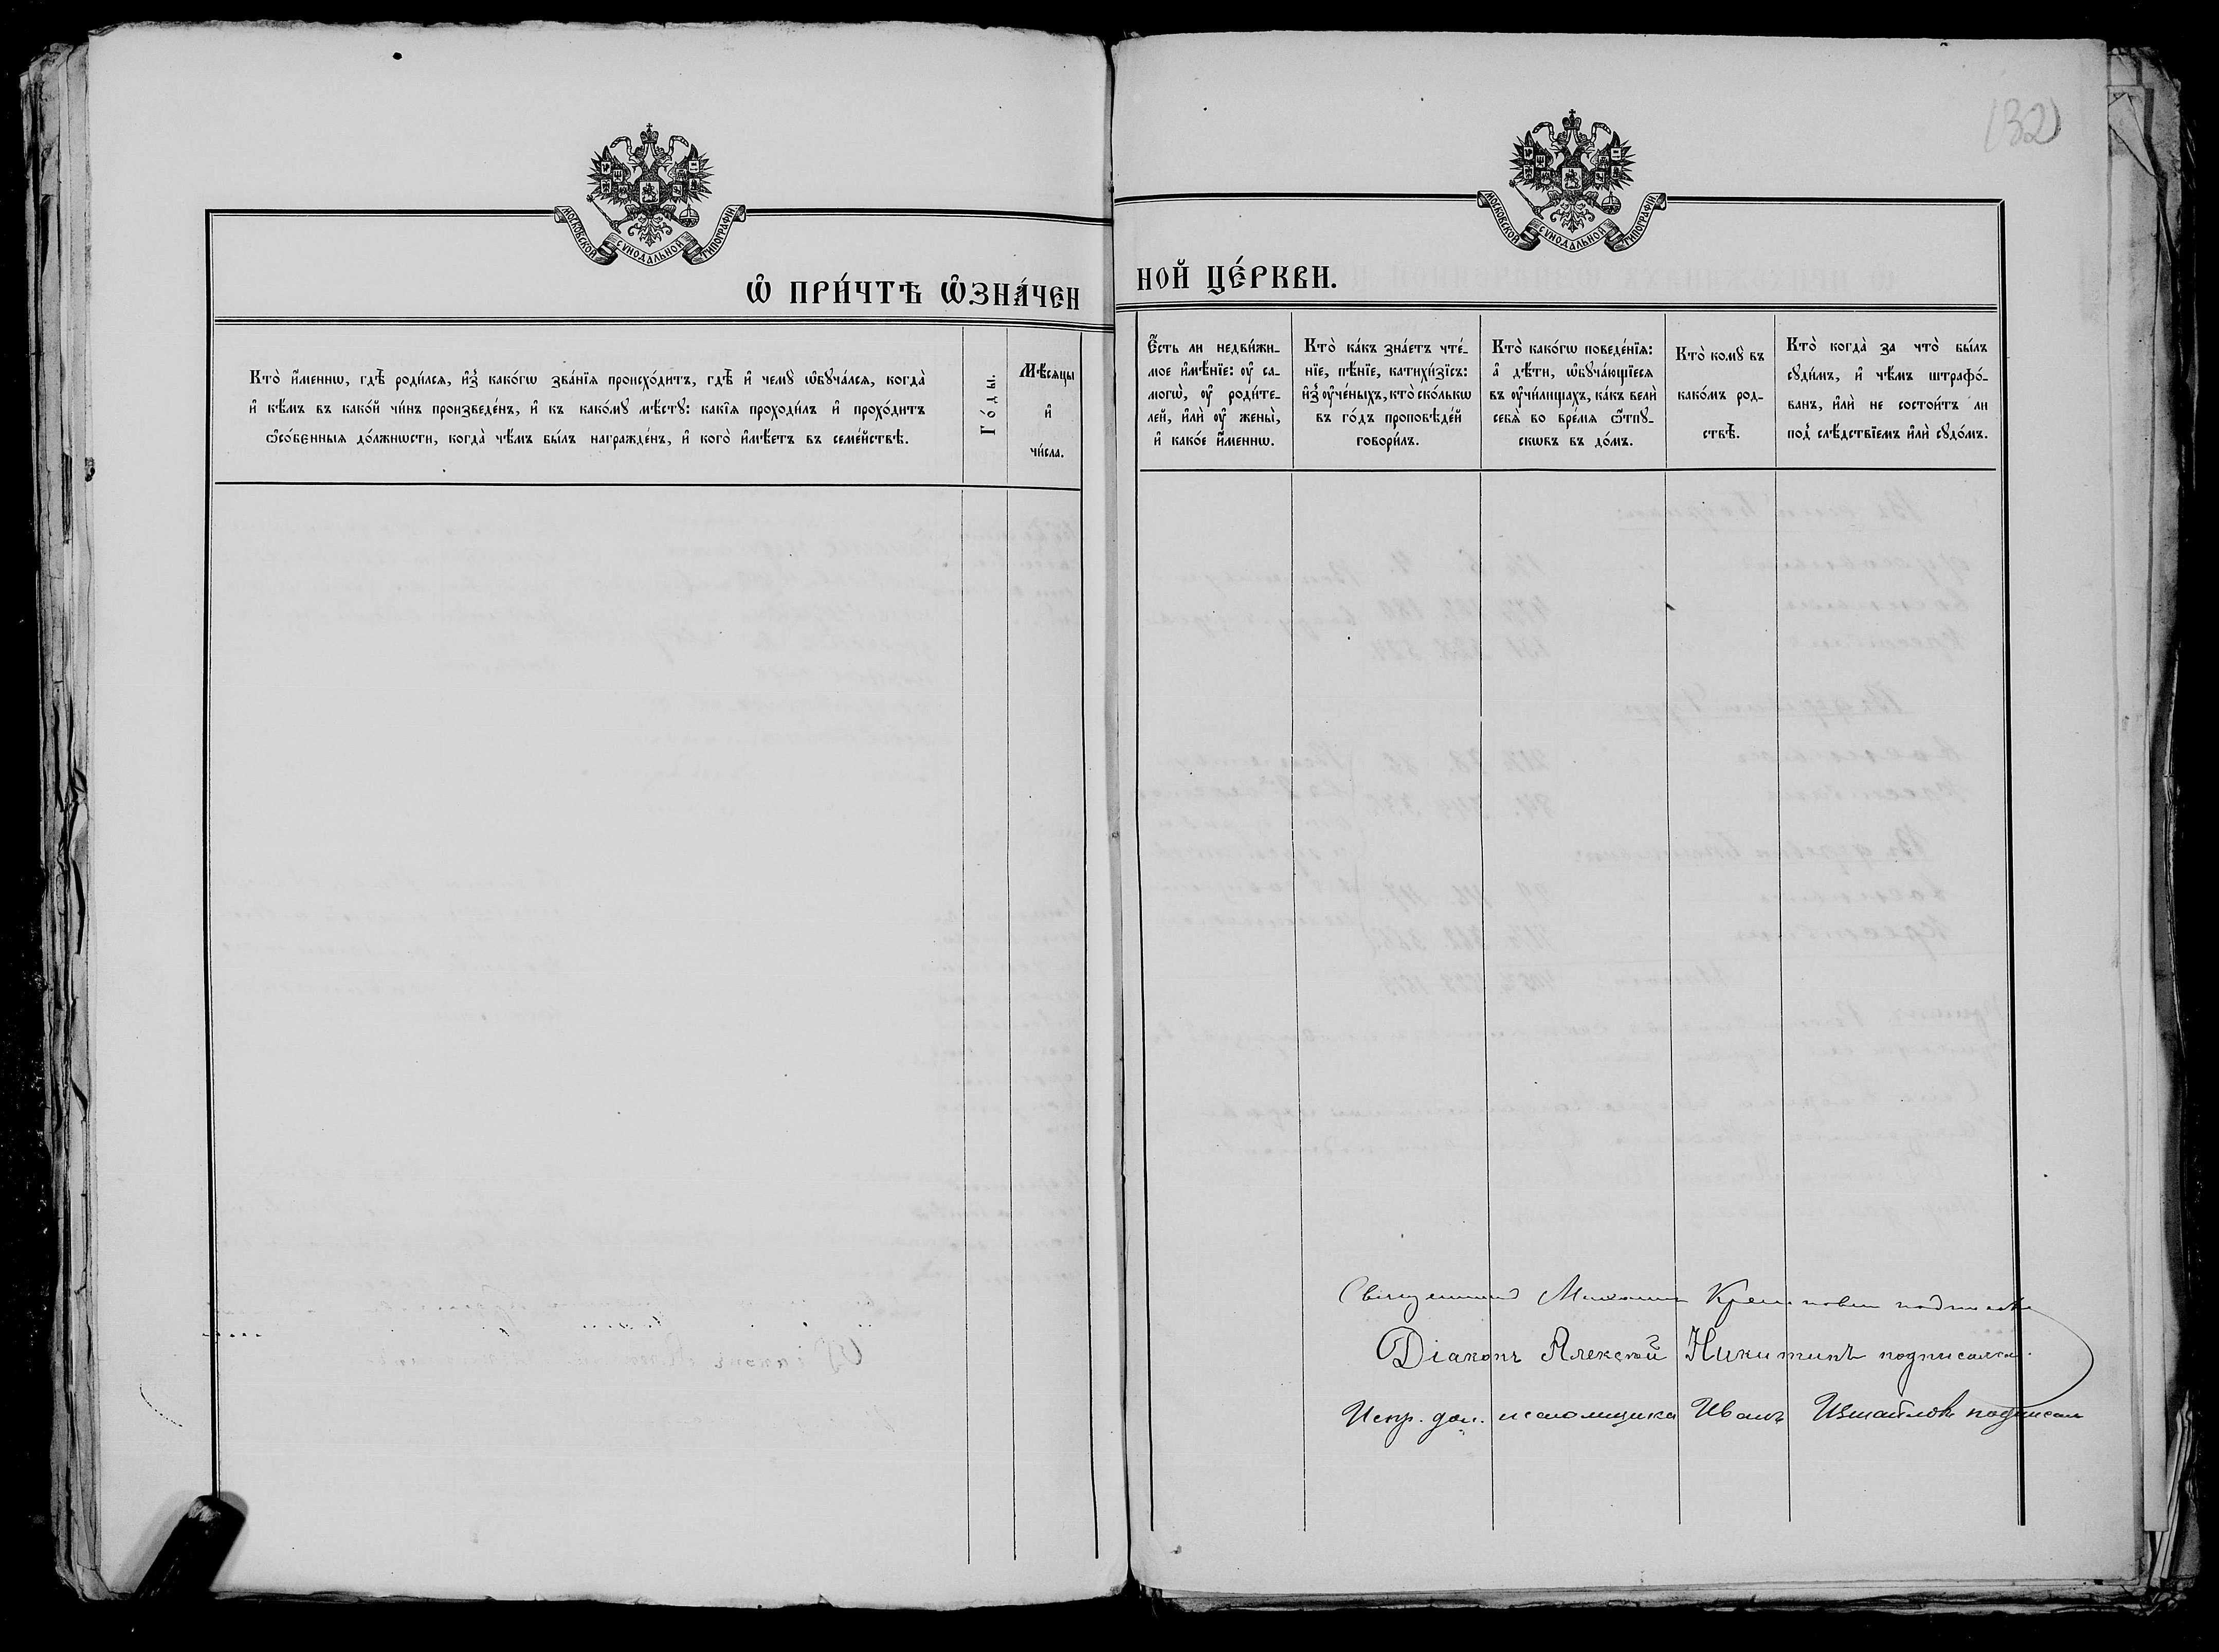 132
МОСКОВСКОЙ СѴНОДАЛЬНОЙ ТИПОГРАФІИ
МОСКОВСКОЙ СѴНОДАЛЬНОЙ ТИПОГРАФІИ
Ѡ ПРИ́ЧТѢ Ѡ҆ЗНА́ЧЕН
НОЙ ЦЕ́РКВИ.
Кто̀ и҆́меннѡ, гдѣ̀ роди́лсѧ, и҆з̾ како́гѡ зва́нїѧ происхо́дитъ, гдѣ̀ и҆ чемꙋ̀ ѡ҆бꙋча́лсѧ, когда̀
и҆ кѣ́мъ въ како́й чи́нъ произведе́нъ, и҆ къ како́мꙋ мѣ́стꙋ: какі̑ѧ проходи́лъ и҆ прохо́дитъ
ѻ҆со́бенныѧ до́лжнѡсти, когда̀ чѣ́мъ бы́лъ награжде́нъ, и҆ кого̀ и҆мѣ́етъ въ семе́йствѣ.
Го́ды.
Мѣ́сѧцы
и҆
чи́сла.
Е҆́сть ли недви́жи-
мое и҆мѣ́нїе: оу҆ са-
могѡ̀, оу҆ роди́те-
лей, и҆лѝ оу҆ жены̀,
и҆ како́е и҆́меннѡ.
Кто̀ ка́къ зна́етъ чте́-
нїе, пѣ́нїе, катихи́зїсъ:
и҆з̾ оу҆че́ныхъ, кто̀ ско́лькѡ
въ го́дъ проповѣ́дей
говори́лъ.
Кто̀ како́гѡ поведе́нїѧ:
а҆ дѣ́ти, ѡ҆бꙋча́ющїесѧ
въ оу҆чи́лищахъ, ка́къ велѝ
себѧ̀ во вре́мѧ ѿпꙋ-
скѡвъ въ до́мъ.
Кто̀ комꙋ̀ въ
како́мъ род-
ствѣ̀.
Кто̀ когда̀ за что̀ бы́лъ
сꙋди́мъ, и҆ чѣ́мъ штрафо́-
ванъ, и҆лѝ не состои́тъ ли
под̾ слѣ́дствїемъ и҆лѝ сꙋдо́мъ.
Священникъ Михаилъ
Діаконъ Алексѣй Никитинъ подписался.
Испр. дол. псаломщика Иванъ Измайловъ подписал